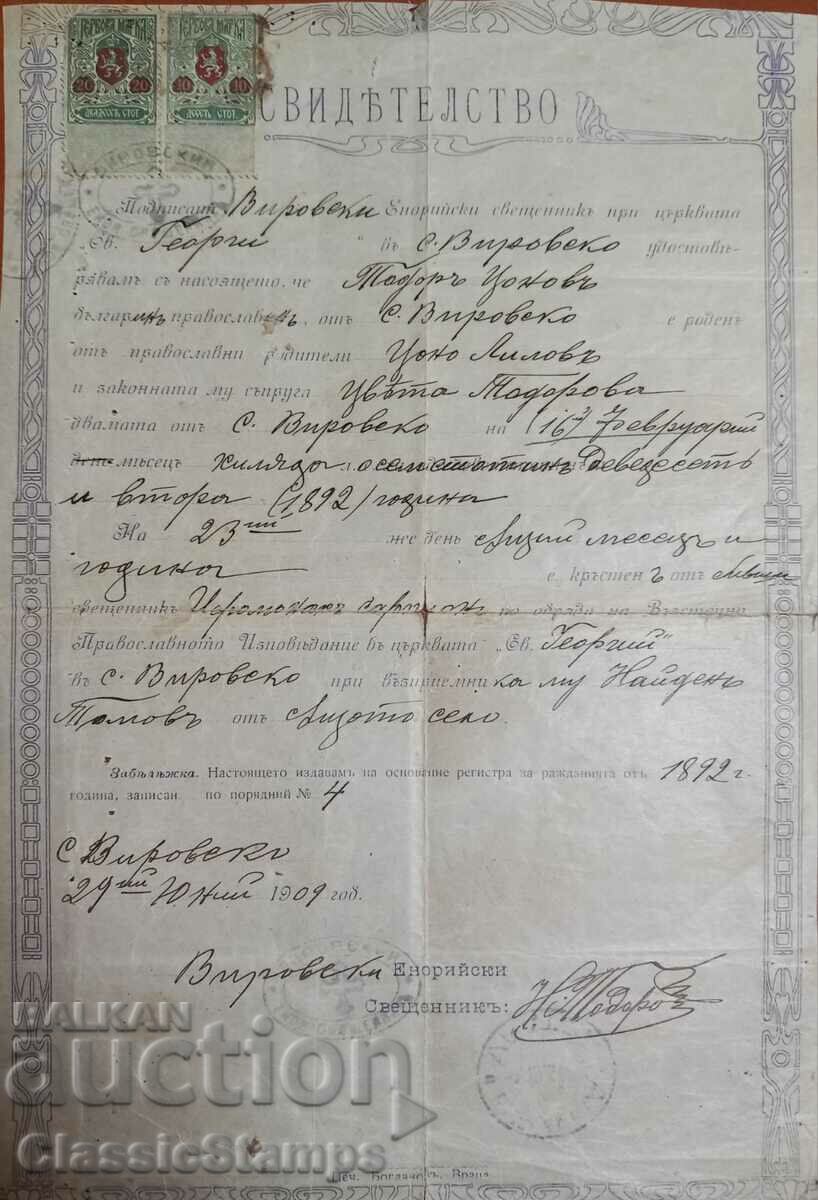 ГЕРБОВА МАРКА ГЕРБОВА МАРКА
20 20 10 10
ДВАДЕСЕТЬ СТОТ. ДЕСЕТЬ СТОТ.
СВИДѢТЕЛСТВО
ВИРОВСКИЙ
Подписаний Вировски Енорийски свещеникъ при църквата
„Св. Георги“ въ с. Вировско удостовѣ-
рявамъ съ настоящето, че Тодоръ Цоновъ
българинъ православенъ, отъ с. Вировско е роденъ
отъ православни родители Цоно Лиловъ
и законната му съпруга Цвѣта Тодорова
двамата отъ с. Вировско на (16й) Февруарий
день мѣсецъ хиляда осемстотинъ Деведесетъ
и втора (1892) година
На 23ий же день същий месецъ и
година е кръстенъ отъ бивши
свещеникъ Иеромонахъ по обряда на Възточно
Православното Изповѣдание въ църквата „Св. Георгий“
въ с. Вировско при възприемника му Найденъ
Томовъ отъ същото село.
Забѣлѣжка. Настоящето издавамъ на основание регистра за ражданията отъ 1892 г.
година, записан по порядний № 4
с. Вировско
29ий Юний 1909 год.
Вировски Енорийски
Свещеникъ: Н. Тодоровъ
BALKAN
auction
ClassicStamps
Печ. Богданов съ, Враца